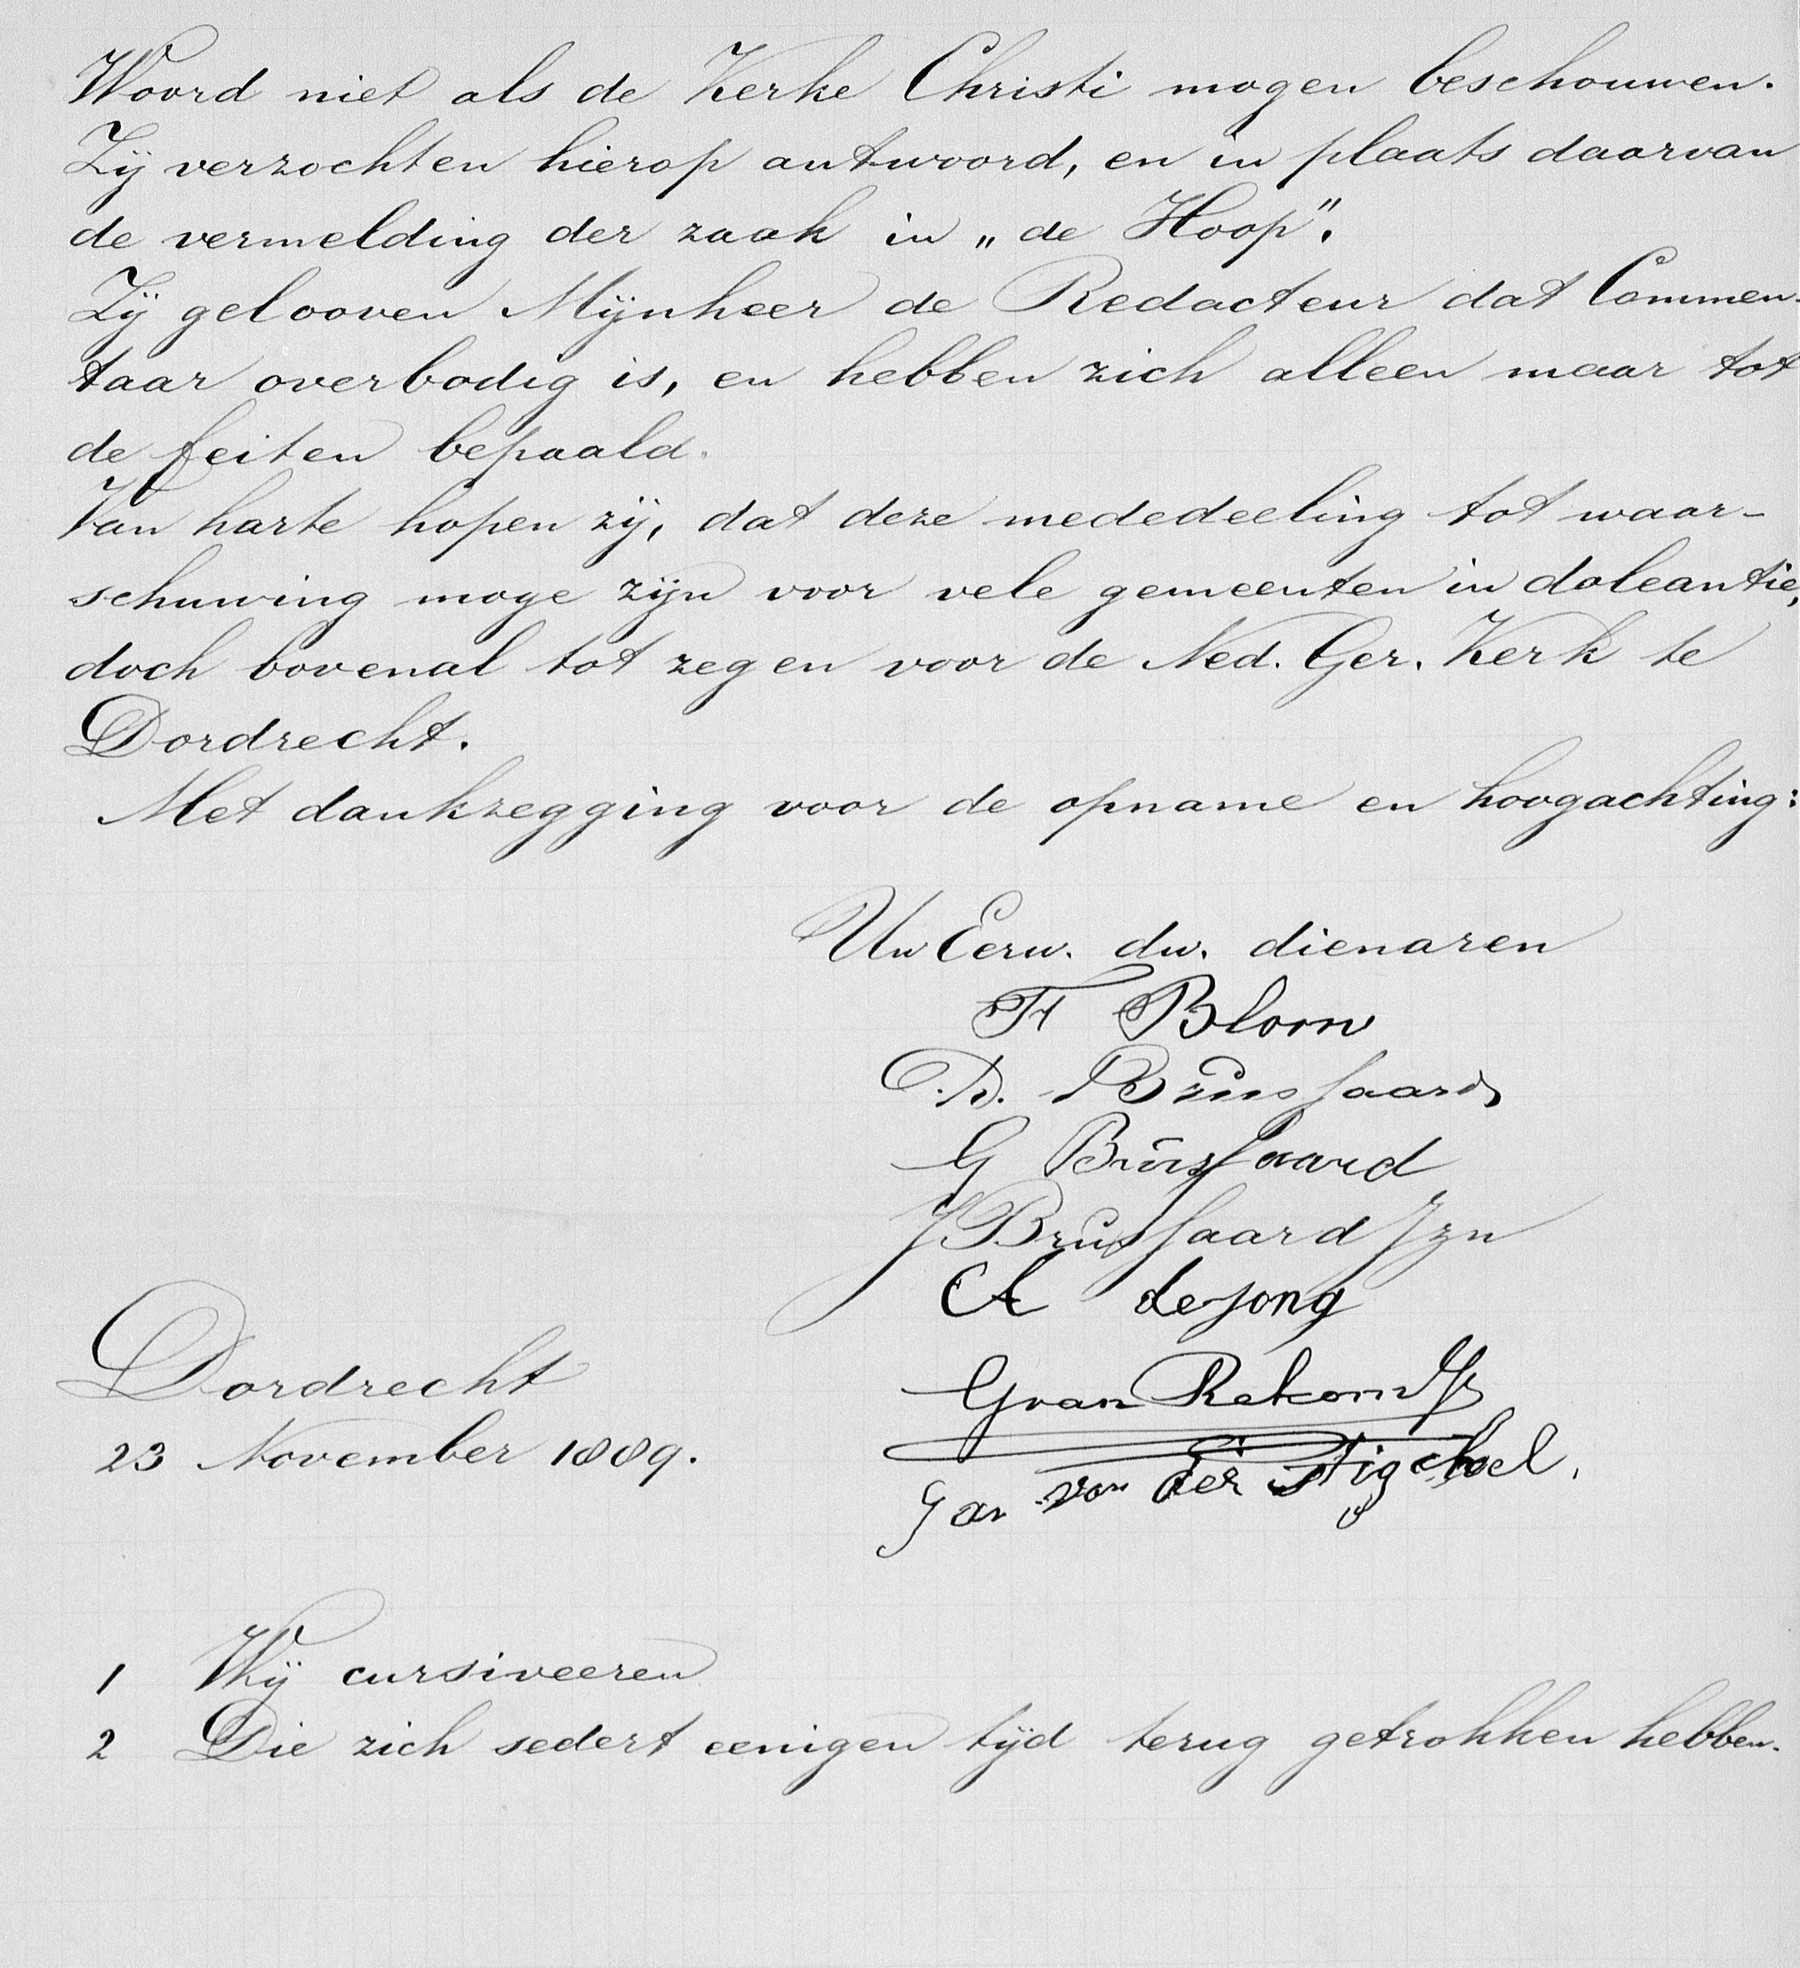 Woord niet als de Kerke Christi mogen beschouwen.
Zij verzochten hierop antwoord, en in plaats daarvan
de vermelding der zaak in „de Hoop”.
Zij gelooven Mijnheer de Redacteur dat Commen-
taar overbodig is, en hebben zich alleen maar tot
de feiten bepaald.
Van harte hopen zij, dat deze mededeeling tot waar-
schuwing moge zijn voor vele gemeenten in doleantie,
doch bovenal tot zegen voor de Ned. Ger. Kerk te
Dordrecht.
Met dankzegging voor de opname en hoogachting:
Uw Eerw. dw. dienaren
Bloom
C. D. Brussaard
G Brussaard
J Brussaard Jzn
A de Jong
G van Rekom Jz
van der Stigchel.
Dordrecht
23 November 1889.
1 Wij cursiveeren
2 Die zich sedert eenigen tijd terug getrokken hebben.